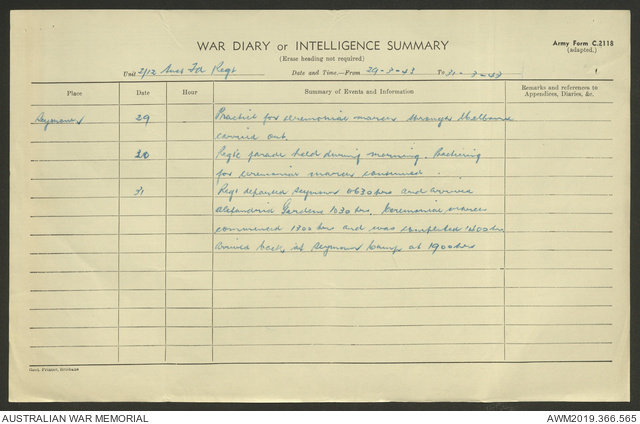 WAR DIARY or INTELLIGENCE SUMMARY
(Erase heading not required)
Army Form C.2118
(adapted.)
Unit 2/12 Aust Fd Regt Date and Time—From 29-3-43 To 31-3-43
Place Date Hour Summary of Events and Information Remarks and references to
Appendices, Diaries, &c.
Seymour 29 Practice for ceremonial march through Melbourne
carried out.
30 Regt parade held during morning. Practicing
for ceremonial march continued.
31 Regt departed Seymour 0630 hrs and arrived
Alexandria Gardens 1030 hrs. Ceremonial march
commenced 1300 hrs and was completed 1400 hrs
Arrived back at Seymour Camp at 1900 hrs
Govt. Printer, Brisbane
AUSTRALIAN WAR MEMORIAL
AWM2019.366.565